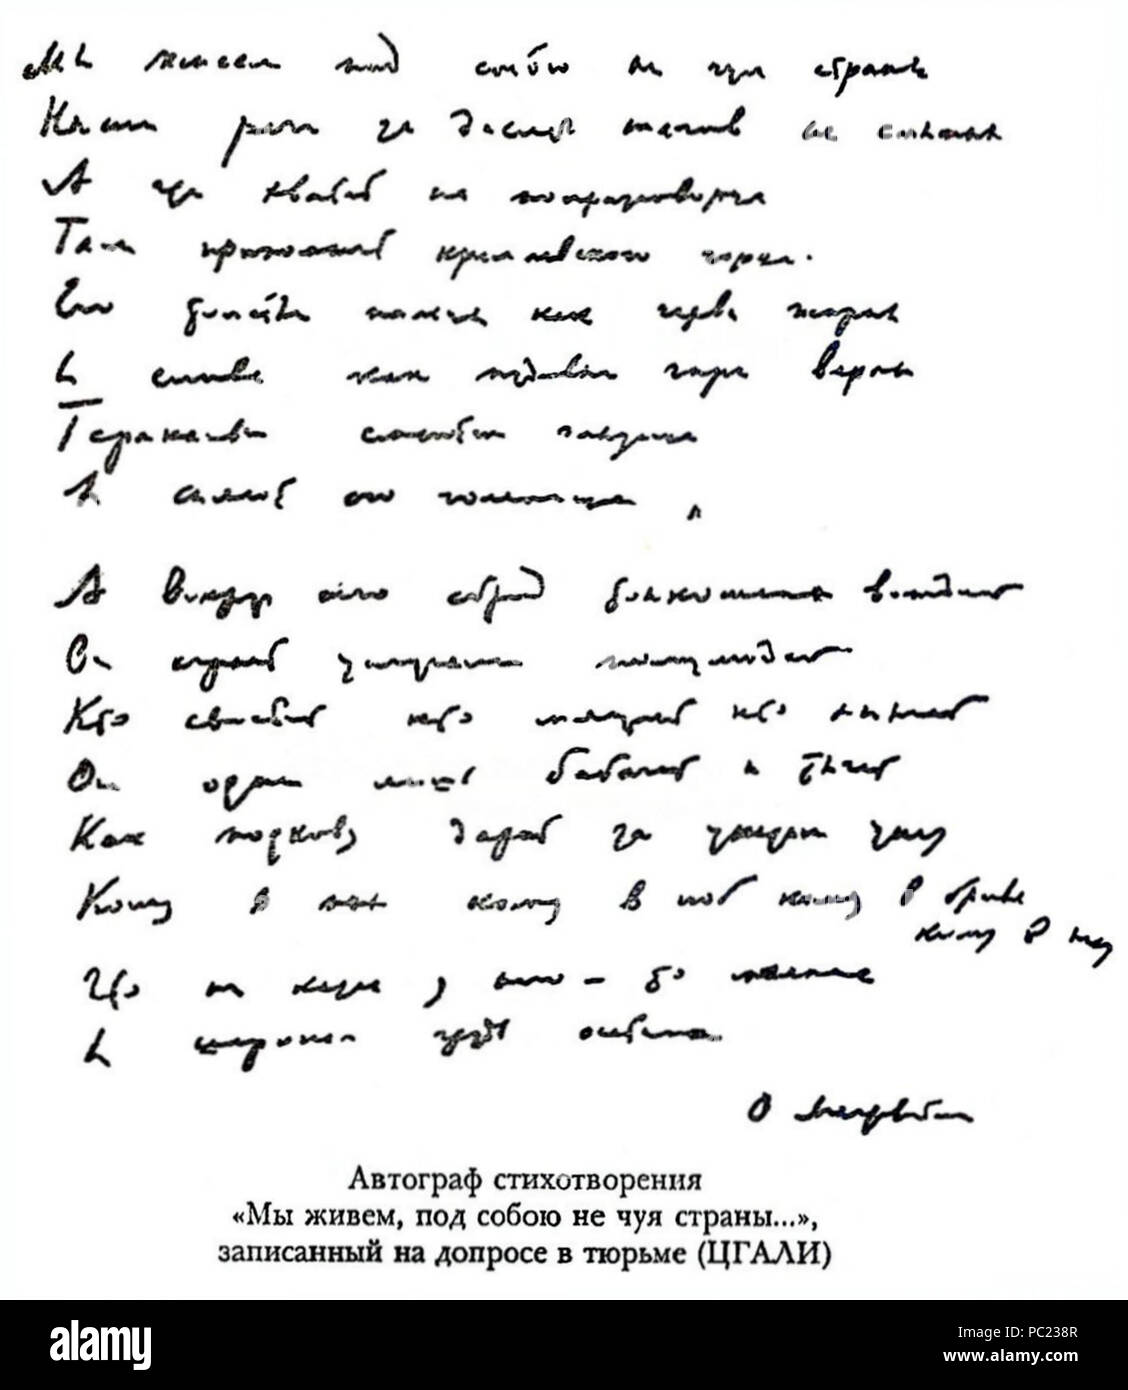 Мы живем под собою не чуя страны
Наши речи за десять шагов не слышны
А где хватает на полразговорца
Там припомнят кремлевского горца.
Его толстые пальцы как черви жирны
И слова как пудовые гири верны
Тараканьи смеются глазища
И сияют его голенища
А вокруг его сброд тонкошеих вождей
Он играет услугами полулюдей
Кто свистит кто мяучит кто хнычет
Он один лишь бабачит и тычет
Как подкову дарит за указом указ
Кому в пах кому в лоб кому в бровь
кому в глаз
Что ни казнь у него – то малина
И широкая грудь осетина
О Мандельштам
Автограф стихотворения
«Мы живем, под собою не чуя страны...»,
записанный на допросе в тюрьме (ЦГАЛИ)
alamy
Image ID: PC238R
www.alamy.com